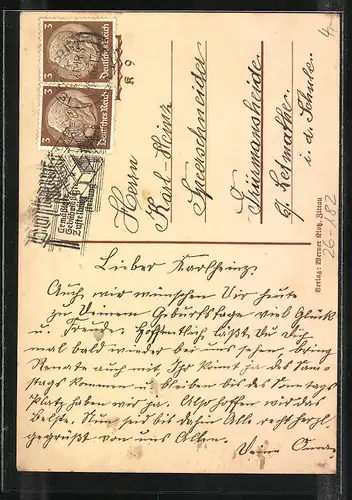 3 Deutsches Reich 3
3 Deutsches Reich 3
K 9
4,-
Herrn
Karl-Heinz
Spezachneider
Stürmansheide
b/ Letmathe.
i. d. Schule.
Verlag: Werner Klotz, Zittau
26-182
Lieber Karlheinz.
Auch wir wünschen Dir heute
zu Deinem Geburtstage viel Glück
u. Freude. Hoffentlich läßt Du Dich
mal bald wieder bei uns sehen, bring
Renate auch mit. Ihr könnt ja des Sams-
tags kommen u. bleiben bis des Sonntags
Platz haben wir ja. Also hoffen wir das
Beste. Nun seid bis dahin Alle recht herzl.
gegrüßt von uns Allen.
Deine Oma